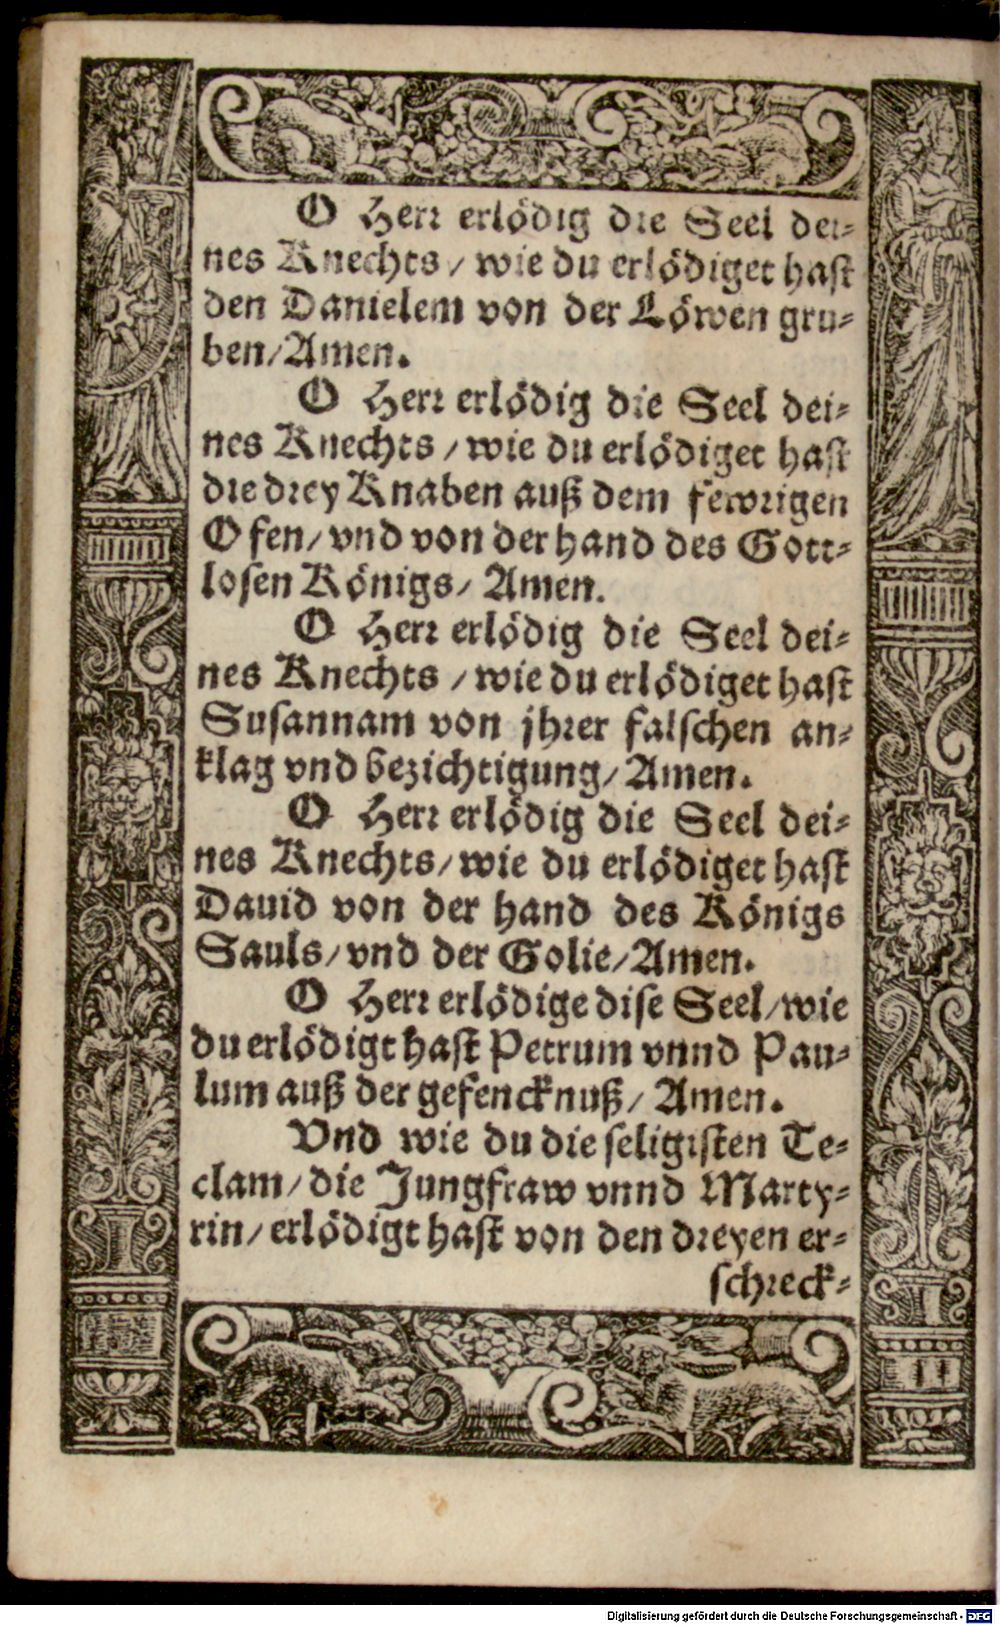 O Herr erlödig die Seel dei⸗
nes Knechts / wie du erlödiget hast
den Danielem von der Löwen gru⸗
ben/ Amen.
O Herr erlödig die Seel dei⸗
nes Knechts / wie du erlödiget hast
die drey Knaben auß dem fewrigen
Ofen/ vnd von der hand des Gott⸗
losen Königs/ Amen.
O Herr erlödig die Seel dei⸗
nes Knechts / wie du erlödiget hast
Susannam von jhrer falschen an⸗
klag vnd bezichtigung/ Amen.
O Herr erlödig die Seel dei⸗
nes Knechts/ wie du erlödiget hast
Dauid von der hand des Königs
Sauls/ vnd der Golie/ Amen.
O Herr erlödige dise Seel/ wie
du erlödigt hast Petrum vnnd Pau⸗
lum auß der gefencknuß/ Amen.
Vnd wie du die seligisten Te⸗
clam/ die Jungfraw vnnd Marty⸗
rin/ erlödigt hast von den dreyen er⸗
schreck⸗
Digitalisierung gefördert durch die Deutsche Forschungsgemeinschaft - DFG